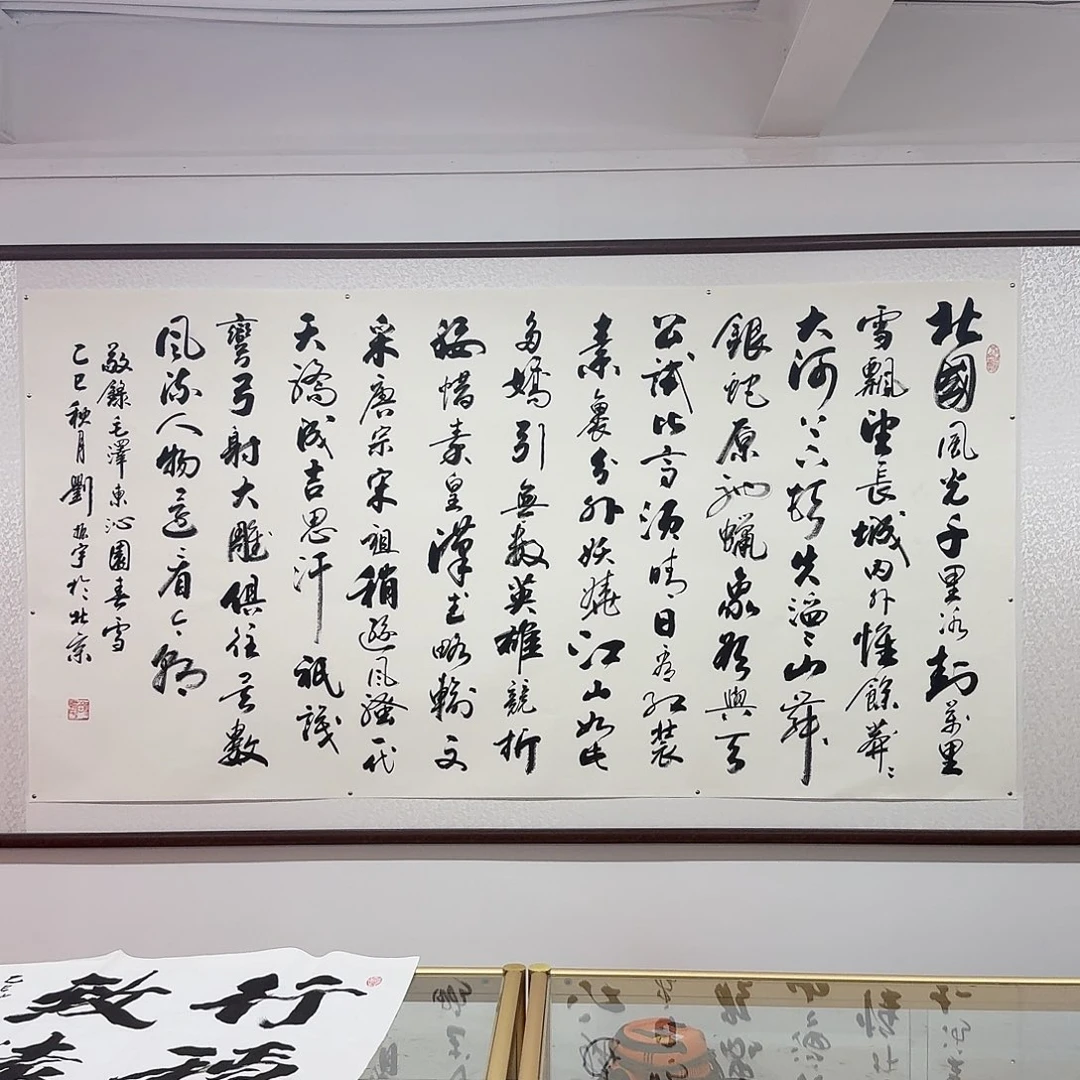 北國風光千里冰封萬里
雪飄望長城內外惟餘莽〻
大河上下頓失滔〻山舞
銀蛇原馳蠟象欲與天
公試比高須晴日看紅裝
素裹分外妖嬈江山如此
多嬌引無數英雄競折
腰惜秦皇漢武略輸文
采唐宗宋祖稍遜風騷一代
天驕成吉思汗祇識
彎弓射大雕俱往矣數
風流人物還看今朝
敬錄毛澤東沁園春雪
乙巳秋月劉振宇於北京
行
致